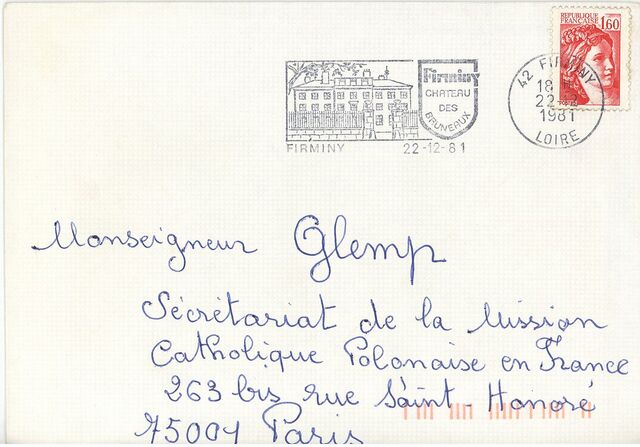 REPUBLIQUE
FRANÇAISE 1,60
Firminy
CHATEAU
DES
BRUNEAUX
FIRMINY 22-12-81
42 FIRMINY
18 H
22-12
1981
LOIRE
Monseigneur Glemp
Sécrétariat de la Mission
Catholique Polonaise en France
263 bis rue Saint-Honoré
75001 Paris